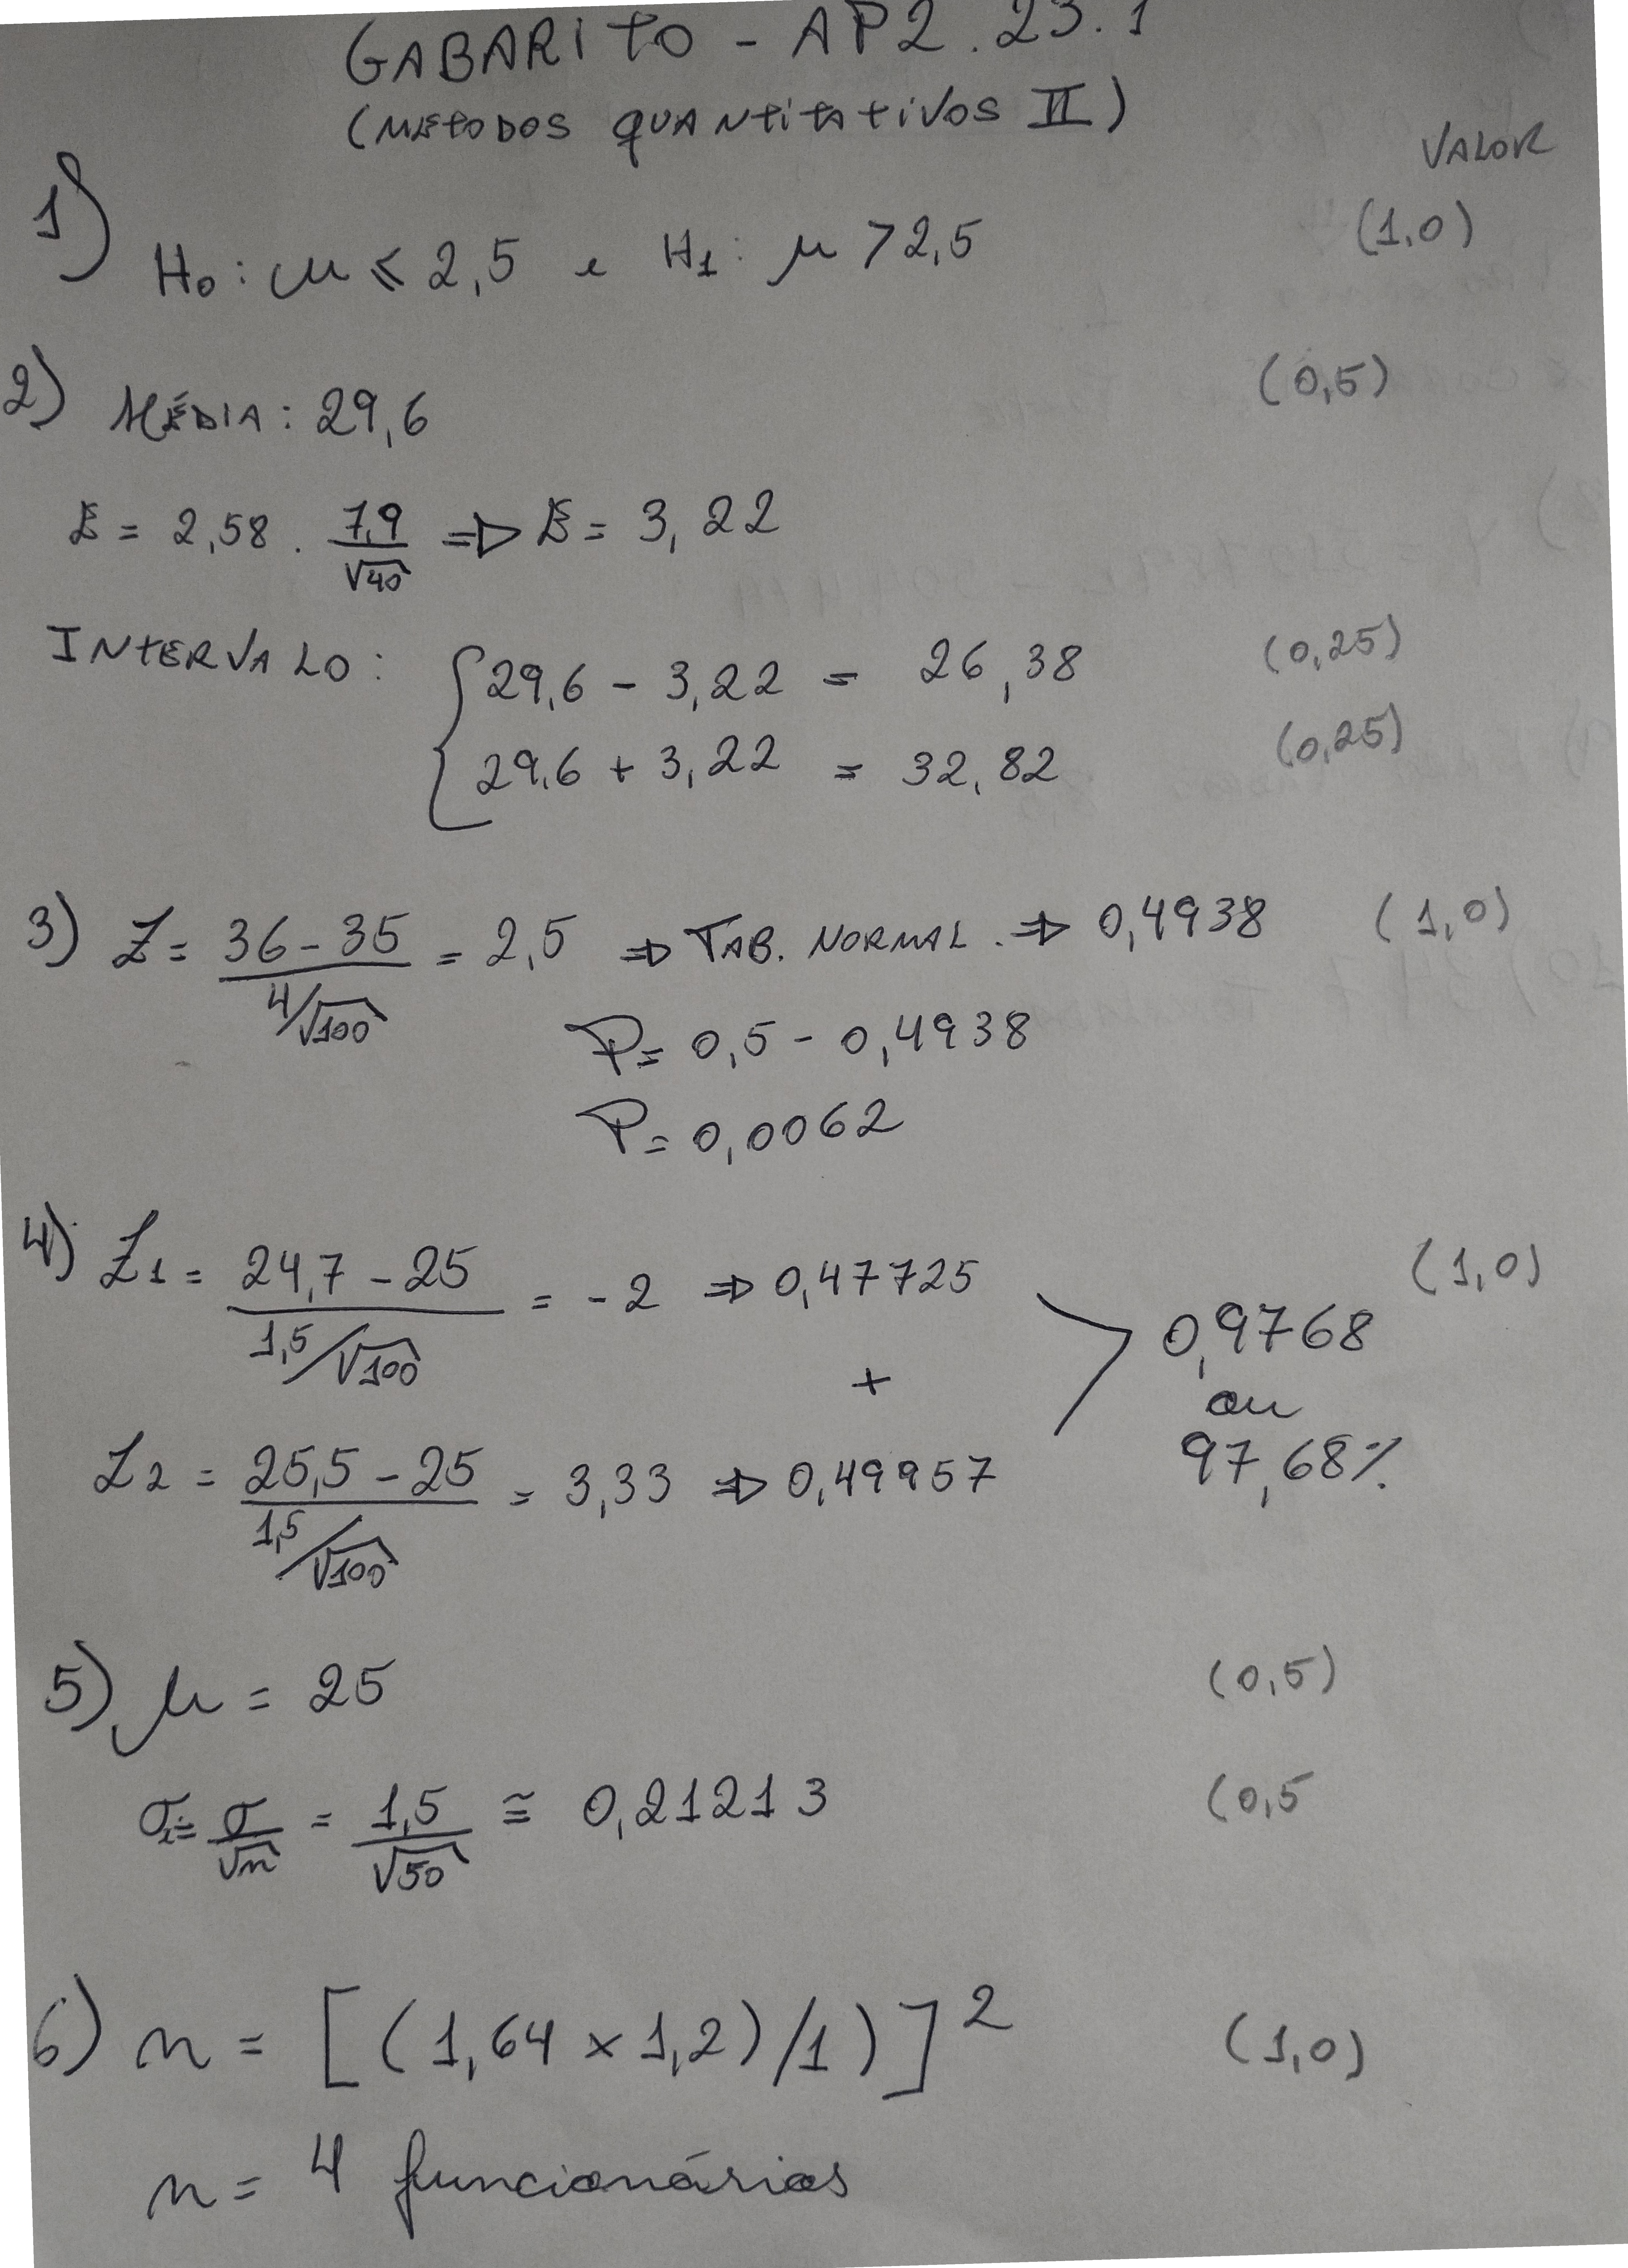 GABARITO - AP2. 23.1
(METODOS QUANTITATIVOS II)
VALOR
1) H₀: μ ≤ 2,5 e H₁: μ > 2,5 (1,0)
2) MÉDIA: 29,6 (0,5)
E = 2,58 . 7,9/√40 ⇒ E = 3,22
INTERVALO: { 29,6 - 3,22 = 26,38 (0,25)
29,6 + 3,22 = 32,82 (0,25)
3) Z = (36 - 35)/(4/√100) = 2,5 ⇒ TAB. NORMAL. ⇒ 0,4938 (1,0)
P = 0,5 - 0,4938
P = 0,0062
4) Z1 = (24,7 - 25)/(1,5/√100) = -2 ⇒ 0,47725 (1,0)
0,9768
+
ou
Z2 = (25,5 - 25)/(1,5/√100) = 3,33 ⇒ 0,49957
97,68%
5) μ = 25 (0,5)
σx̄ = σ/√n = 1,5/√50 ≅ 0,21213 (0,5
6) n = [(1,64 × 1,2)/1)]² (1,0)
n = 4 funcionários